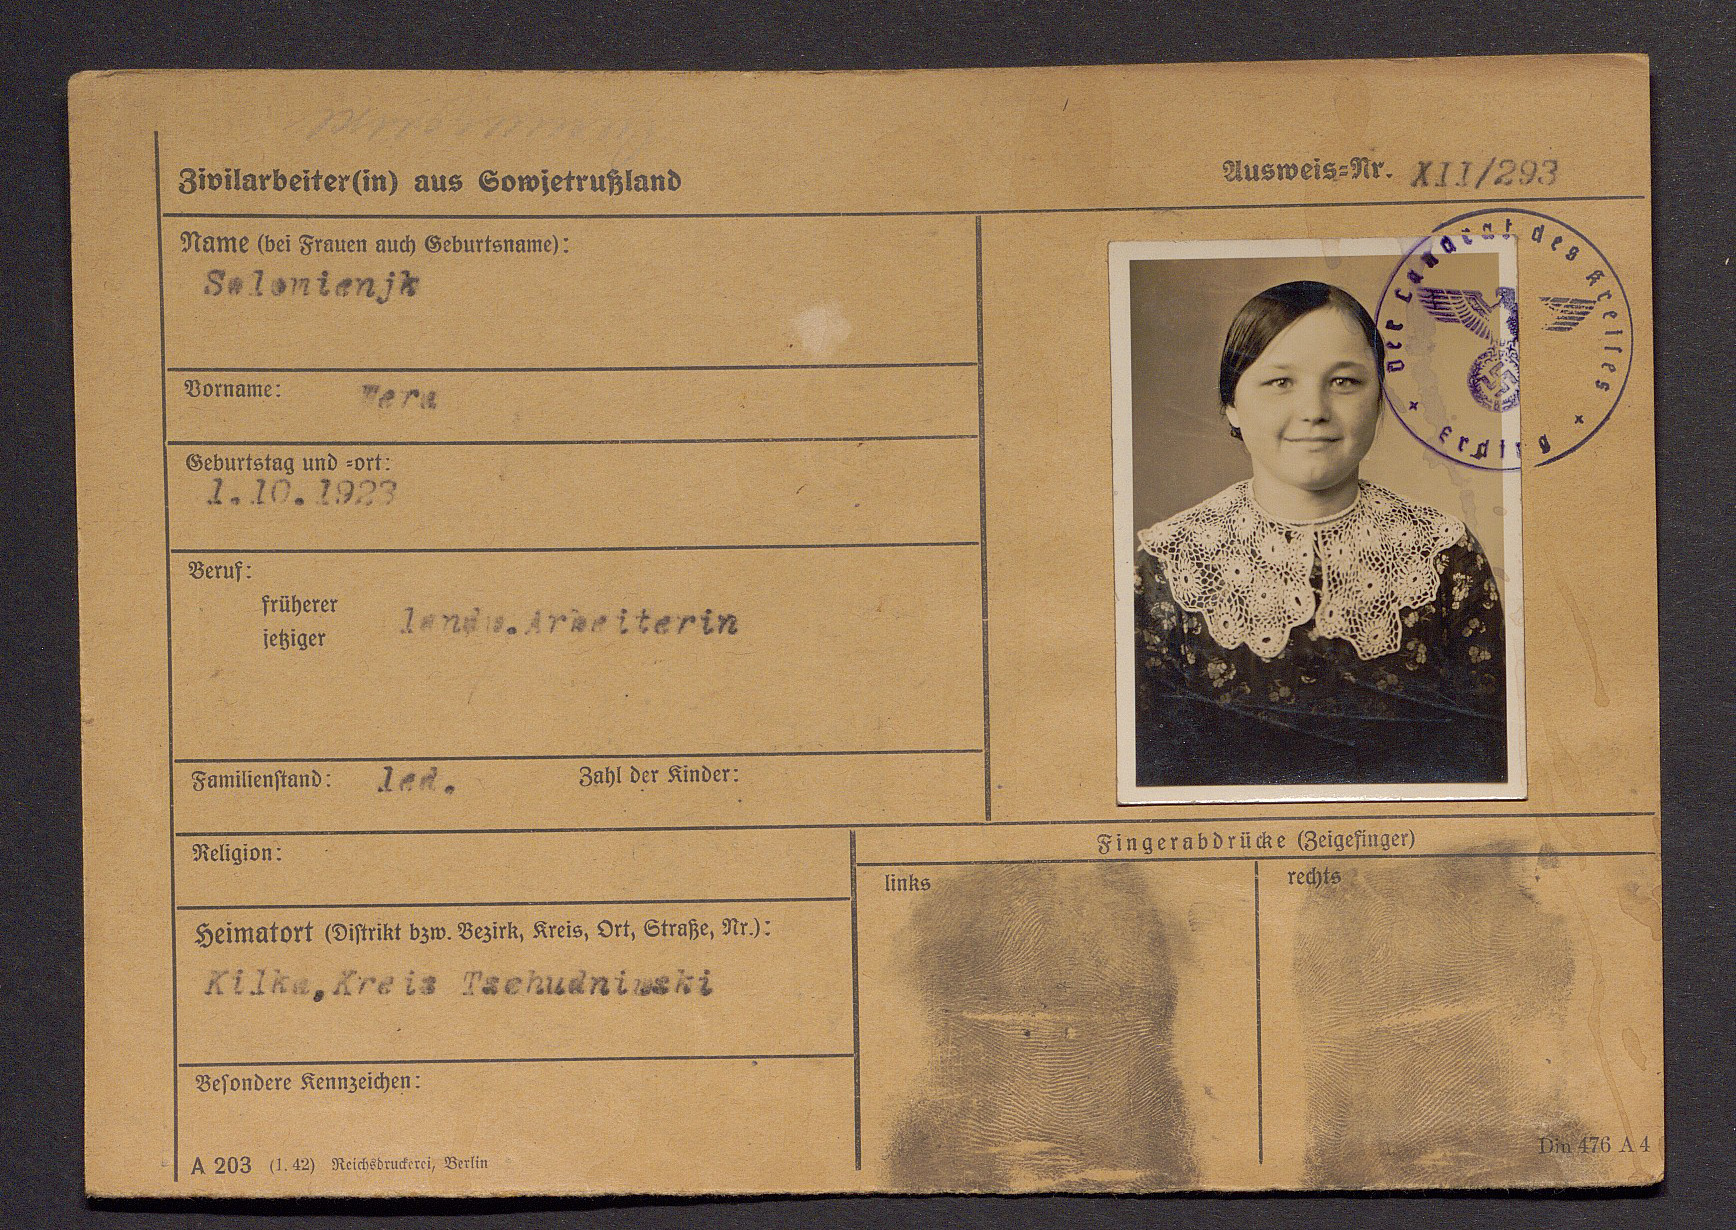 Zivilarbeiter(in) aus Sowjetrußland
Ausweis=Nr. XII/293
Name (bei Frauen auch Geburtsname):
Solomienjk
Vorname: Wera
Geburtstag und =ort:
1.10.1923
Beruf:
früherer
jetziger
landw.Arbeiterin
Familienstand: led. Zahl der Kinder:
Religion:
Heimatort (Distrikt bzw. Bezirk, Kreis, Ort, Straße, Nr.):
Kilka,Kreis Tschudniwski
Besondere Kennzeichen:
A 203 (1. 42) Reichsdruckerei, Berlin
Der Landrat des Kreises
Erding
Fingerabdrücke (Zeigefinger)
links
rechts
Din 476 A 4